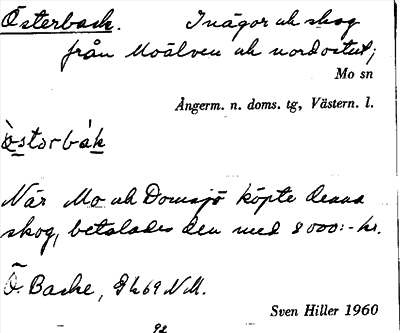 Österback. Inägor och skog
från Moälven och nordostut;
Mo sn
Ångerm. n. doms. tg, Västern. l.
När Mo och Domsjö köpte denna
skog, betalades den med 8000:- kr.
Ö. Backe, 9 k 69 N.M.
Sven Hiller 1960
92